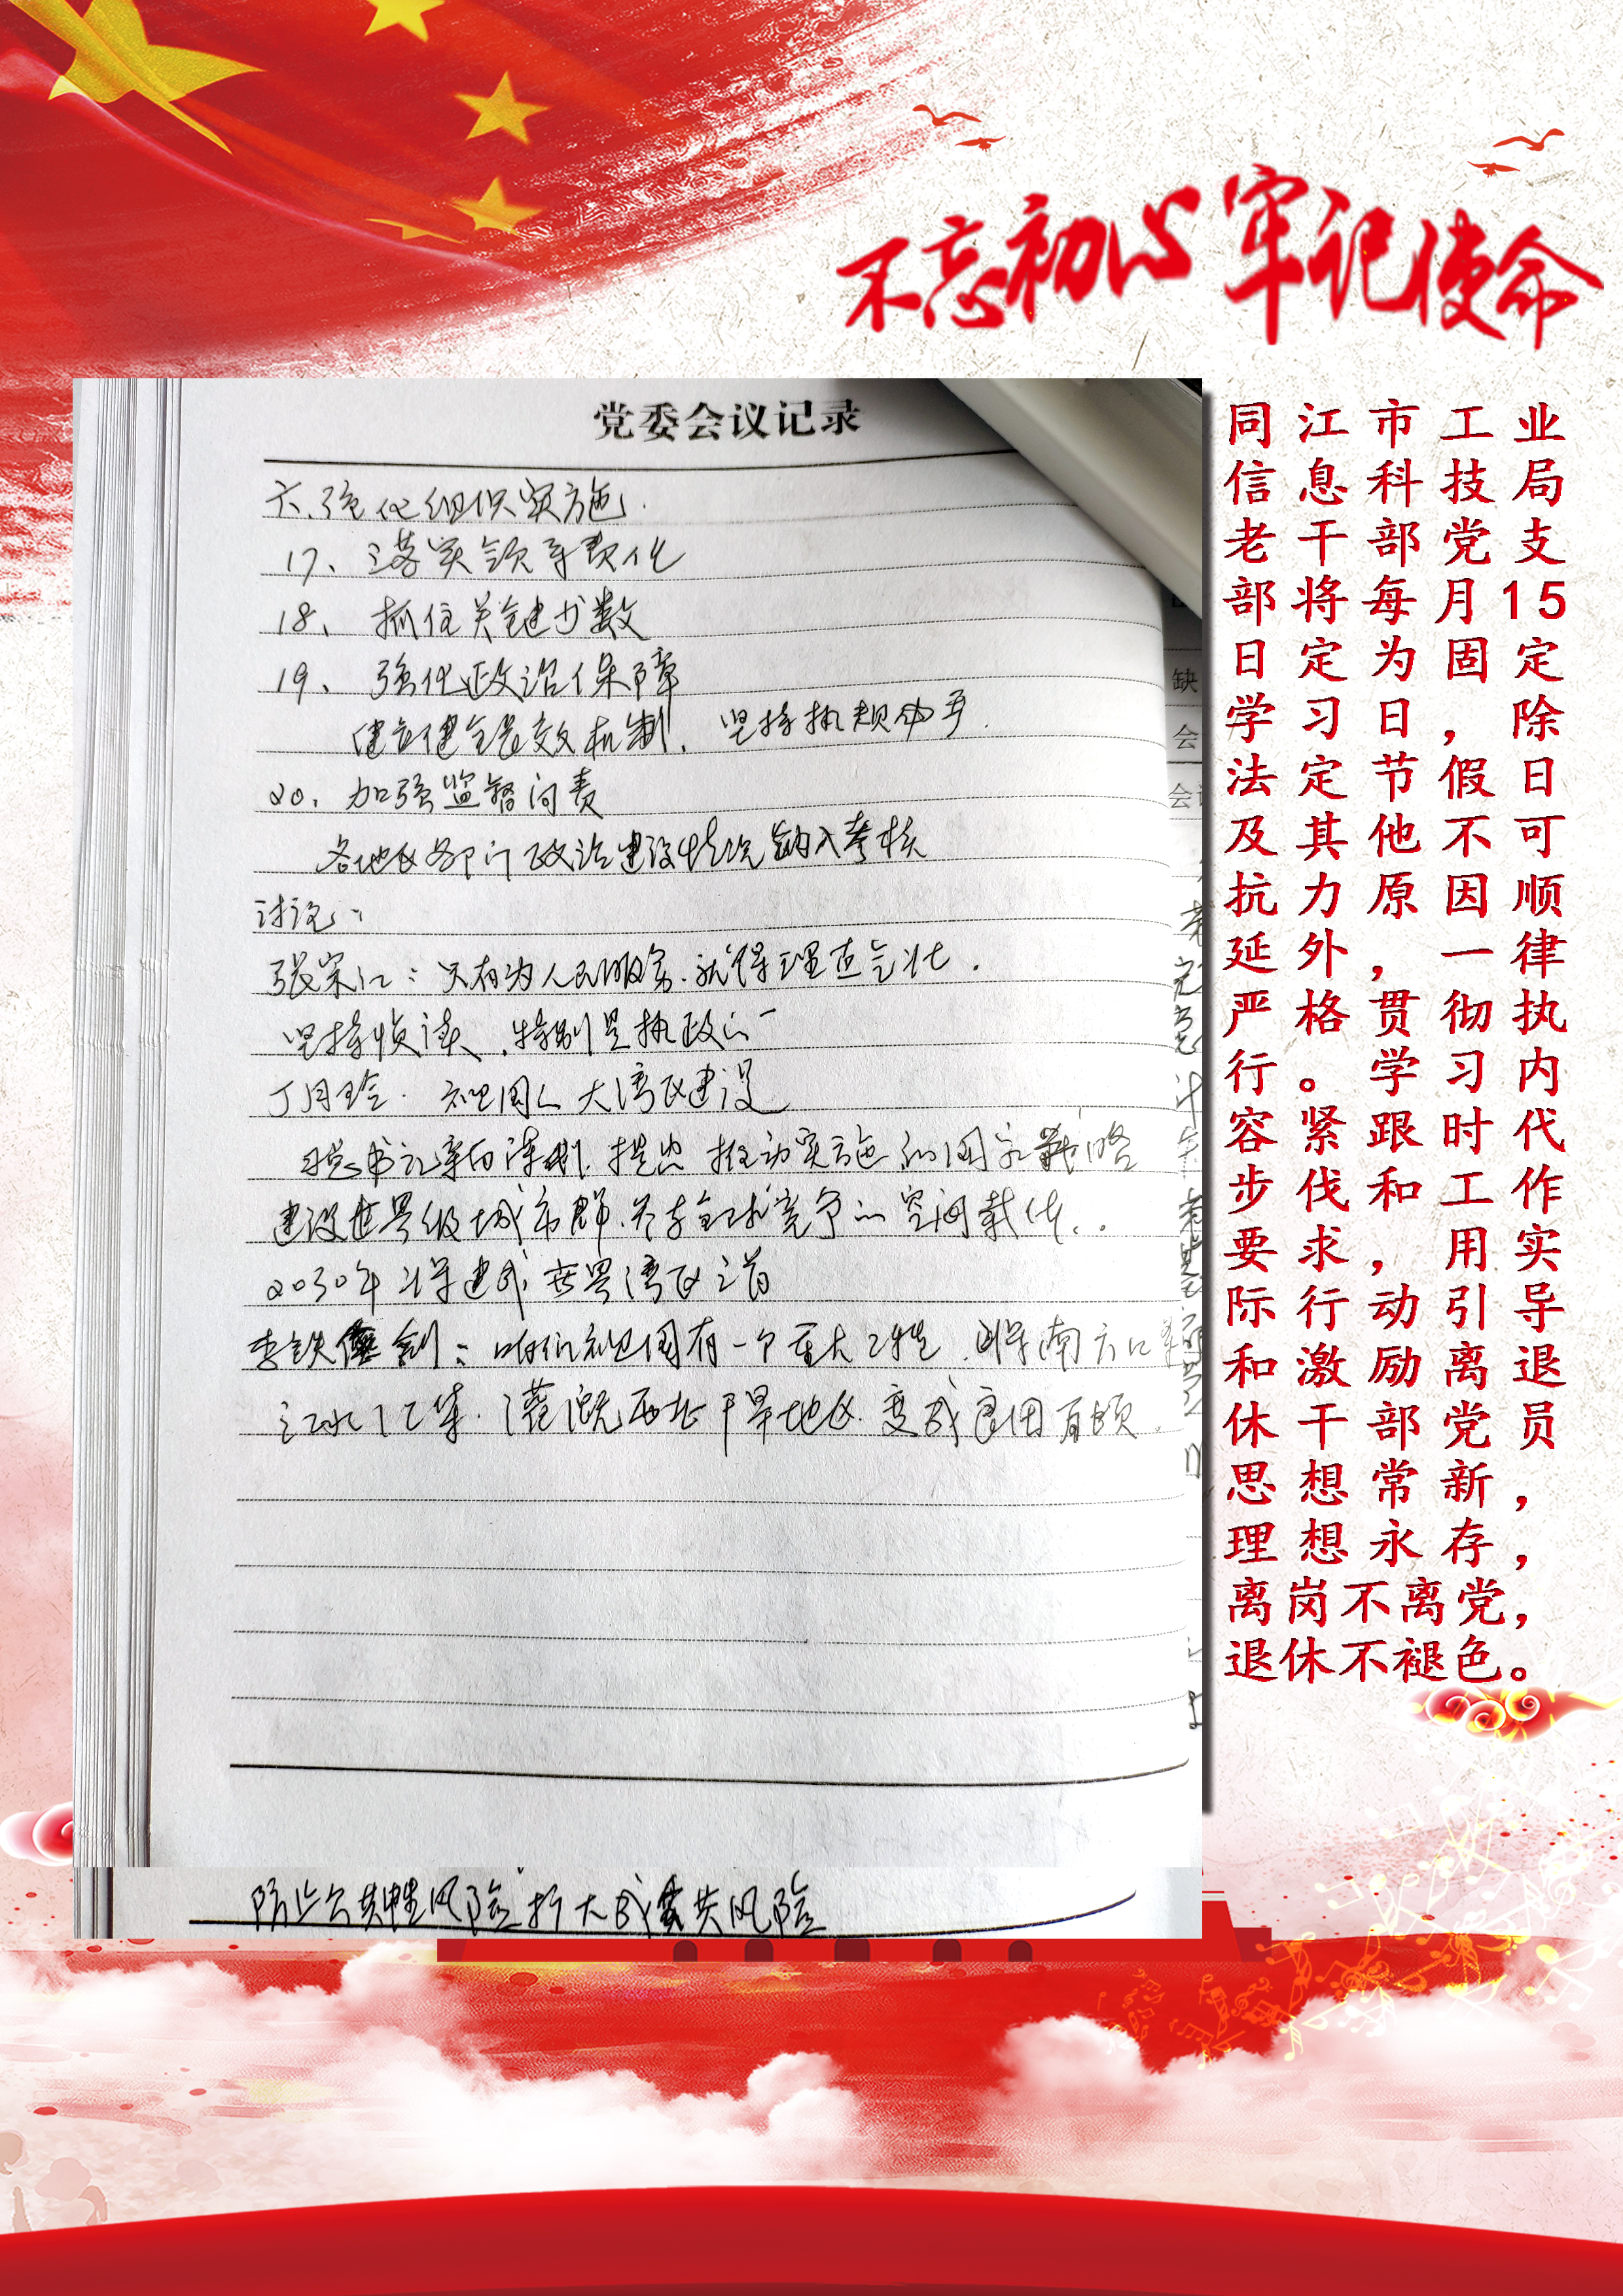 不忘初心 牢记使命
党委会议记录
六、强化组织实施.
17、落实领导责任
18、抓住关键少数
19、强化政治保障
建立健全长效机制. 坚持执规必严.
20、加强监督问责
各地区各部门政治建设情况纳入考核
讨论:
只有为人民服务.就得理直气壮.
坚持 特别是执政
丁月玲. 祖国 大湾区建设
习总书记亲自谋划. 推动实施的国家战略
建设世界级城市群.参与全球竞争的空间载体.
2030年 建成 世界湾区之首
李铁 剑: 咱们祖国有一个重大工程. 将南方
江水 灌溉西北干旱地区.变成良田百顷.
防止公共性风险扩大成 共风险
缺
会
会
同江市工业
信息科技局
老干部党支
部将每月15
日定为固定
学习日,除
法定节假日
及其他不可
抗力原因顺
延外,一律
严格贯彻执
行。学习内
容紧跟时代
步伐和工作
要求,用实
际行动引导
和激励离退
休干部党员
思想常新,
理想永存,
离岗不离党,
退休不褪色。